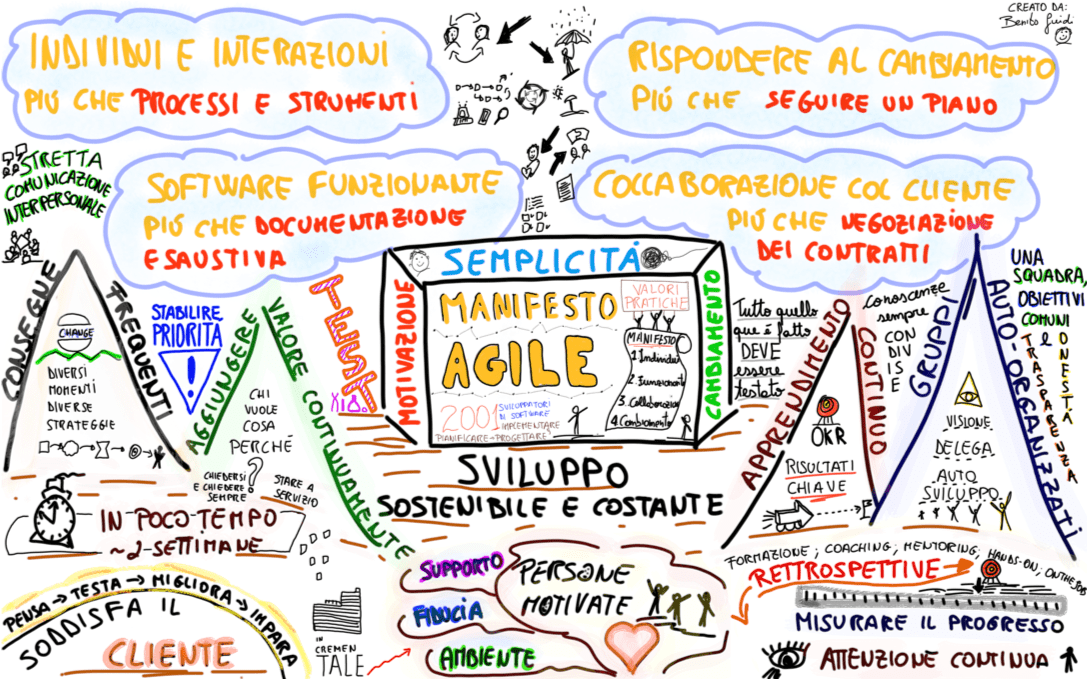 CREATO DA:
Benito Guidi
INDIVIDUI E INTERAZIONI
PIÚ CHE PROCESSI E STRUMENTI
RISPONDERE AL CAMBIAMENTO
PIÚ CHE SEGUIRE UN PIANO
STRETTA
COMUNICAZIONE
INTERPERSONALE
SOFTWARE FUNZIONANTE
PIÚ CHE DOCUMENTAZIONE
ESAUSTIVA
COLLABORAZIONE COL CLIENTE
PIÚ CHE NEGOZIAZIONE
DEI CONTRATTI
CONSEGUE
FREQUENTI
CHANGE
DIVERSI
MOMENTI
DIVERSE
STRATEGIE
STABILIRE
PRIORITÀ
!
AGGIUNGERE
VALORE CONTINUAMENTE
CHI
VUOLE
COSA
PERCHÉ
?
CHIEDERSI
E CHIEDERE
SEMPRE
STARE A
SERVIZIO
TEST
MOTIVAZIONE
SEMPLICITÁ
CAMBIAMENTO
MANIFESTO
AGILE
2001
SVILUPPATORI
DI SOFTWARE
IMPLEMENTARE
PIANIFICARE
PROGETTARE
VALORI
PRATICHE
MANIFESTO
1. Individui
2. Funzionante
3. Collaborazione
4. Cambiamento
Tutto quello
que é fatto
DEVE
essere
testato
APPRENDIMENTO
CONTINUO
conoscenze
sempre
CON
DIV
IS
E
OKR
RISULTATI
CHIAVE
GRUPPI
AUTO-ORGANIZZATI
VISIONE
DELEGA
AUTO
SVILUPPO
UNA
SQUADRA,
OBIETTIVI
COMUNI
E
ONESTÁ
TRASPARENZA
SVILUPPO
SOSTENIBILE E COSTANTE
IN POCO TEMPO
~2 SETTIMANE
PENSA → TESTA → MIGLIORA → IMPARA
SODDISFA IL
CLIENTE
IN
CREMEN
TALE
SUPPORTO
FIDUCIA
AMBIENTE
PERSONE
MOTIVATE
FORMAZIONE; COACHING; MENTORING; HANDS-ON; ONTHEJOB
RETTROSPETTIVE
MISURARE IL PROGRESSO
ATTENZIONE CONTINUA